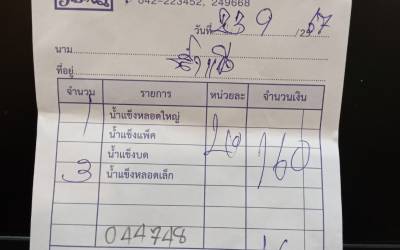 042-223452, 249668
วันที่ 23 9 /2567
นาม
ที่อยู่
จำนวน รายการ หน่วยละ จำนวนเงิน
1 น้ำแข็งหลอดใหญ่
น้ำแข็งแพ็ค 40 160
น้ำแข็งบด
3 น้ำแข็งหลอดเล็ก
044748